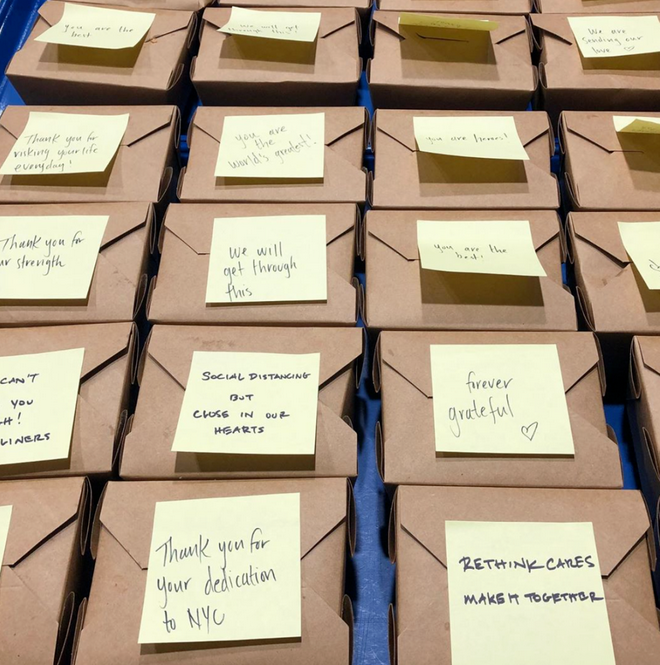 you are the
best
We will get
through this!
We are
sending our
love ♡
Thank you for
risking your life
everyday!
you are
the
world's greatest!
you are heroes!
Thank you for
ur strength
We will
get through
this
you are the
best!
CAN'T
YOU
H!
LINERS
SOCIAL DISTANCING
BUT
CLOSE IN OUR
HEARTS
forever
grateful ♡
Thank you for
your dedication
to NYC
RETHINK CARES
MAKE IT TOGETHER